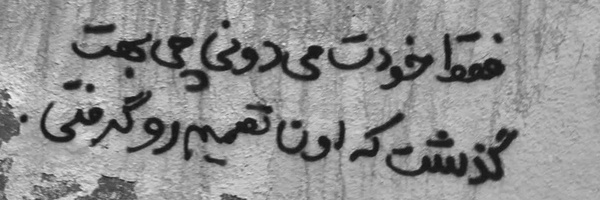 فقط خودت می دونی چی بهت
گذشت که اون تصمیم رو گرفتی.